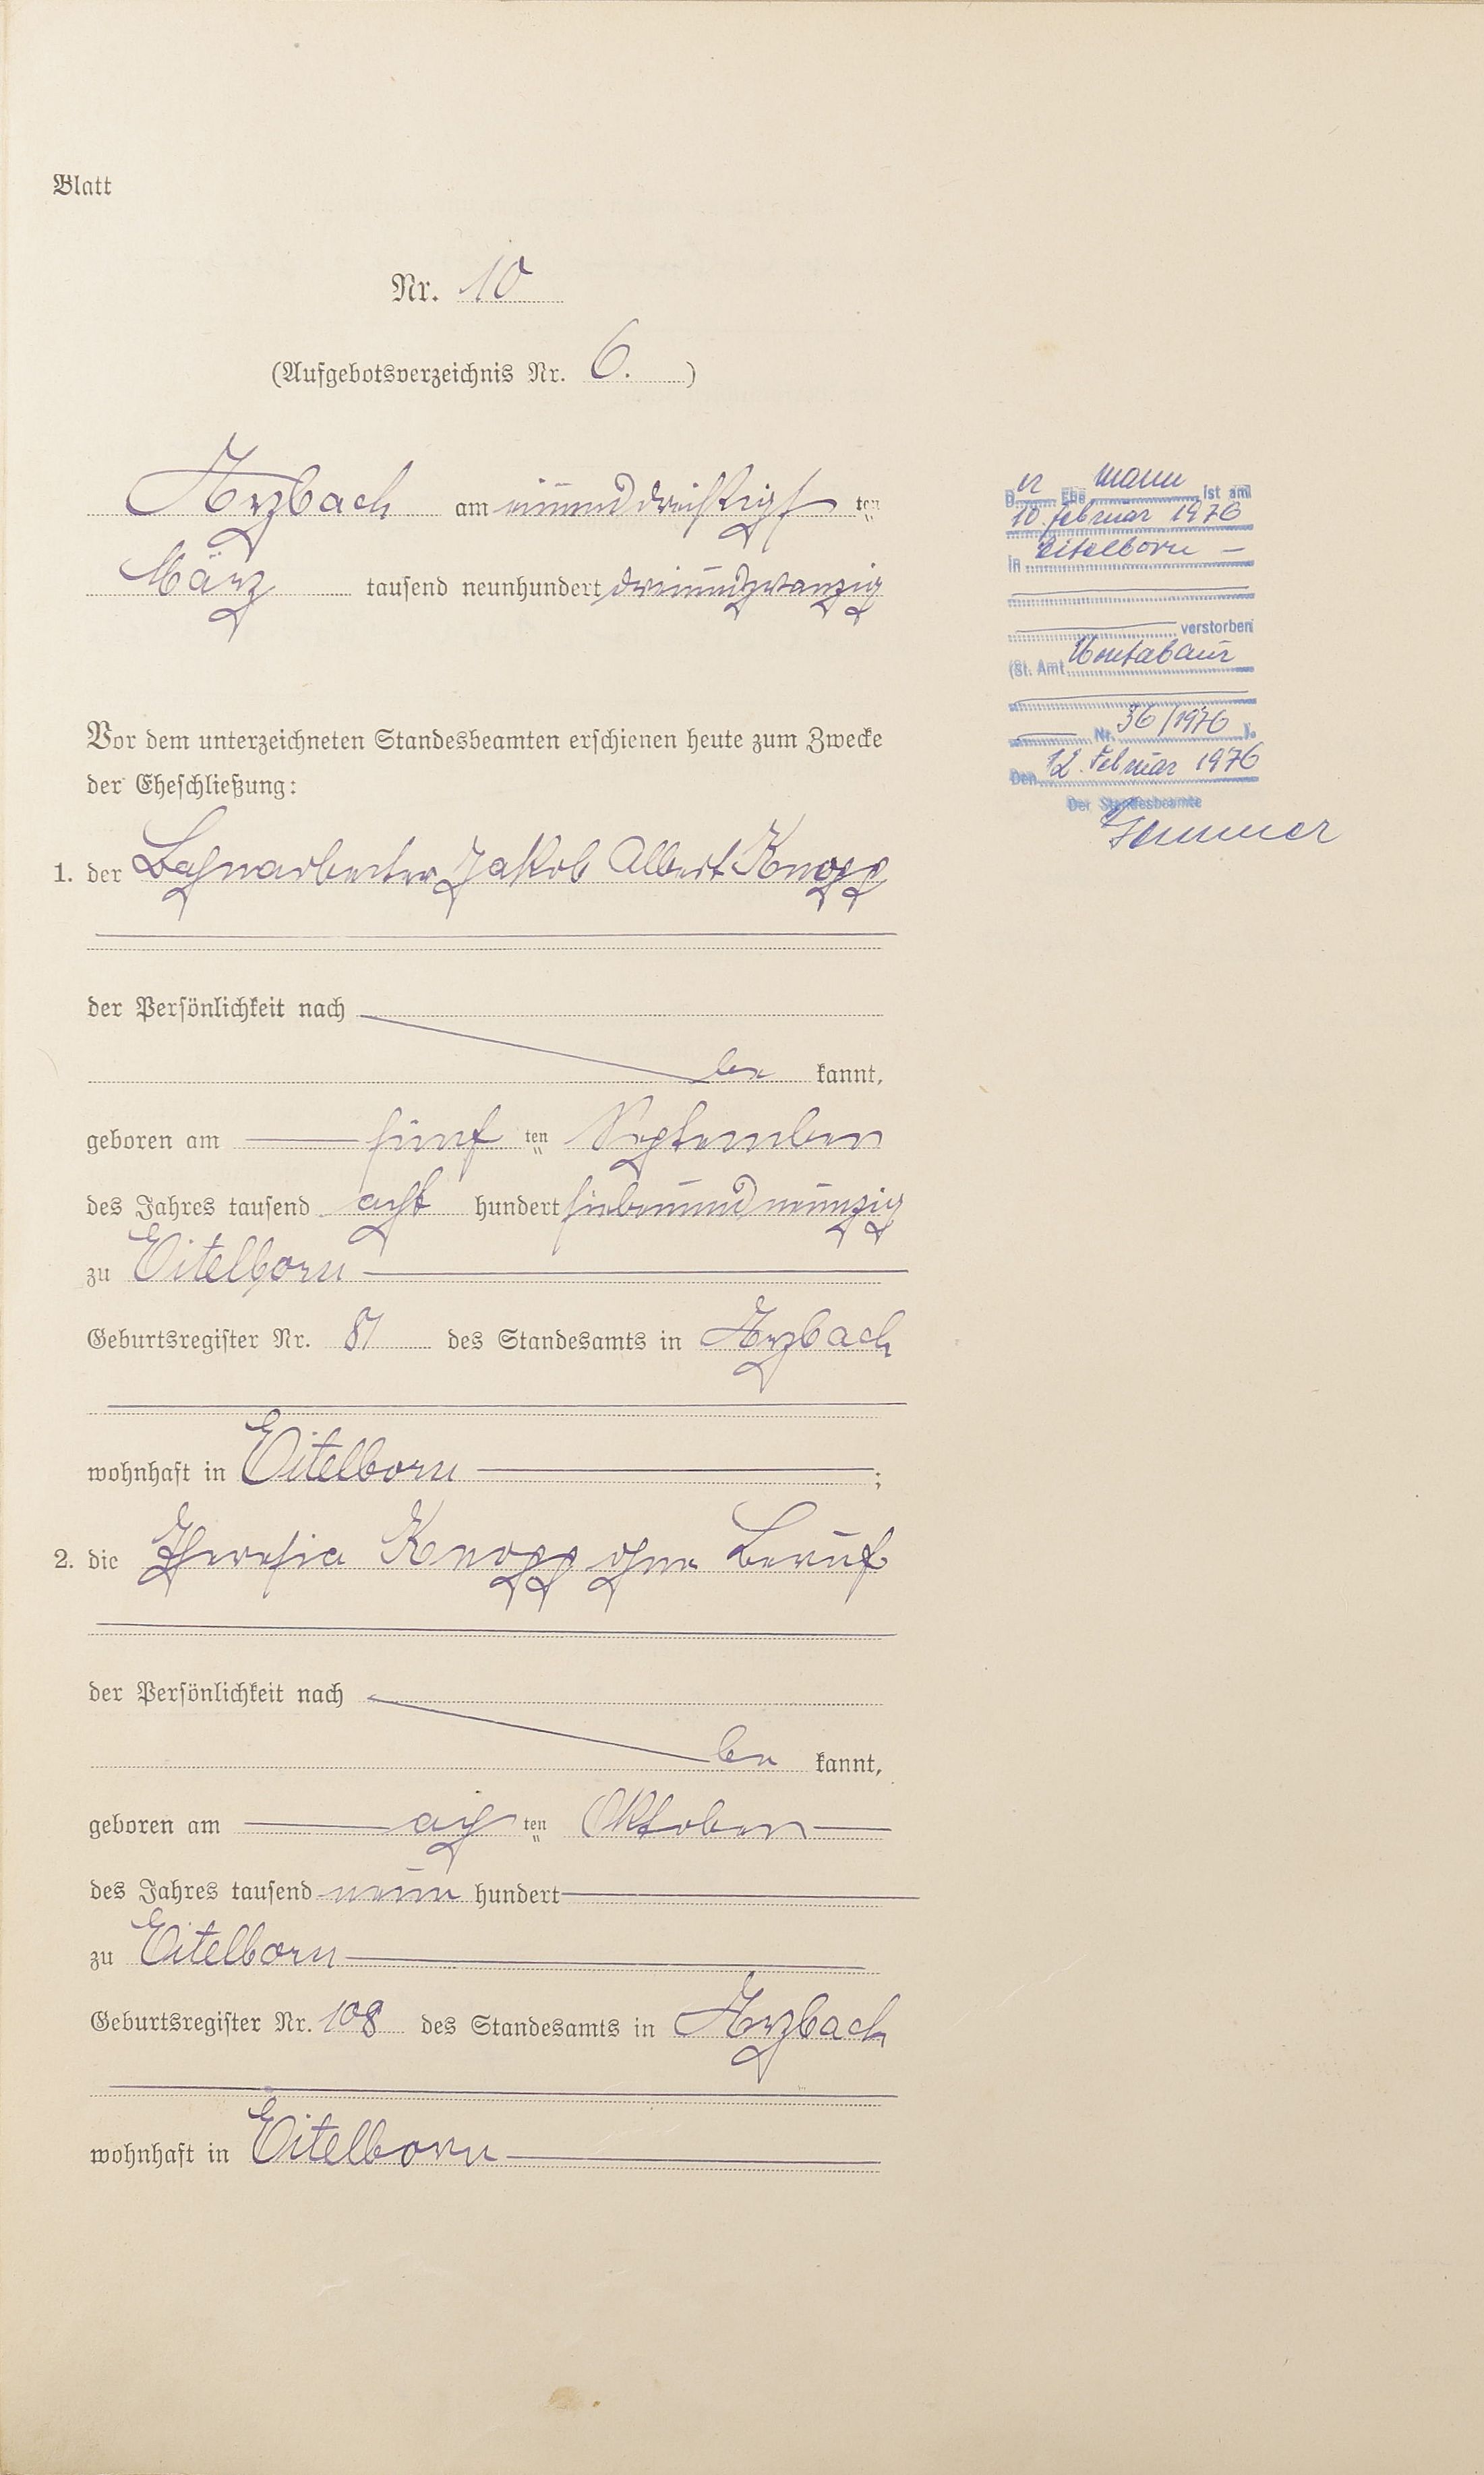 Blatt
Nr. 10
(Aufgebotsverzeichnis Nr. 6. )
Arzbach am einunddreißigst ten
März tausend neunhundert dreiundzwanzig
Vor dem unterzeichneten Standesbeamten erschienen heute zum Zwecke
der Eheschließung:
1. der Bahnarbeiter Jakob Albert Knopp
der Persönlichkeit nach
be kannt,
geboren am fünf ten September
des Jahres tausend acht hundert siebenundneunzig
zu Eitelborn
Geburtsregister Nr. 81 des Standesamts in Arzbach
wohnhaft in Eitelborn ;
2. die Theresia Knopp ohne Beruf
der Persönlichkeit nach
be kannt,
geboren am ach ten Oktober
des Jahres tausend neun hundert
zu Eitelborn
Geburtsregister Nr. 108 des Standesamts in Arzbach
wohnhaft in Eitelborn
Der Ehemann ist am
10. Februar 1976
in Eitelborn –
verstorben
(St. Amt Montabaur
Nr. 36/1976 ).
Den 12. Februar 1976
Der Standesbeamte